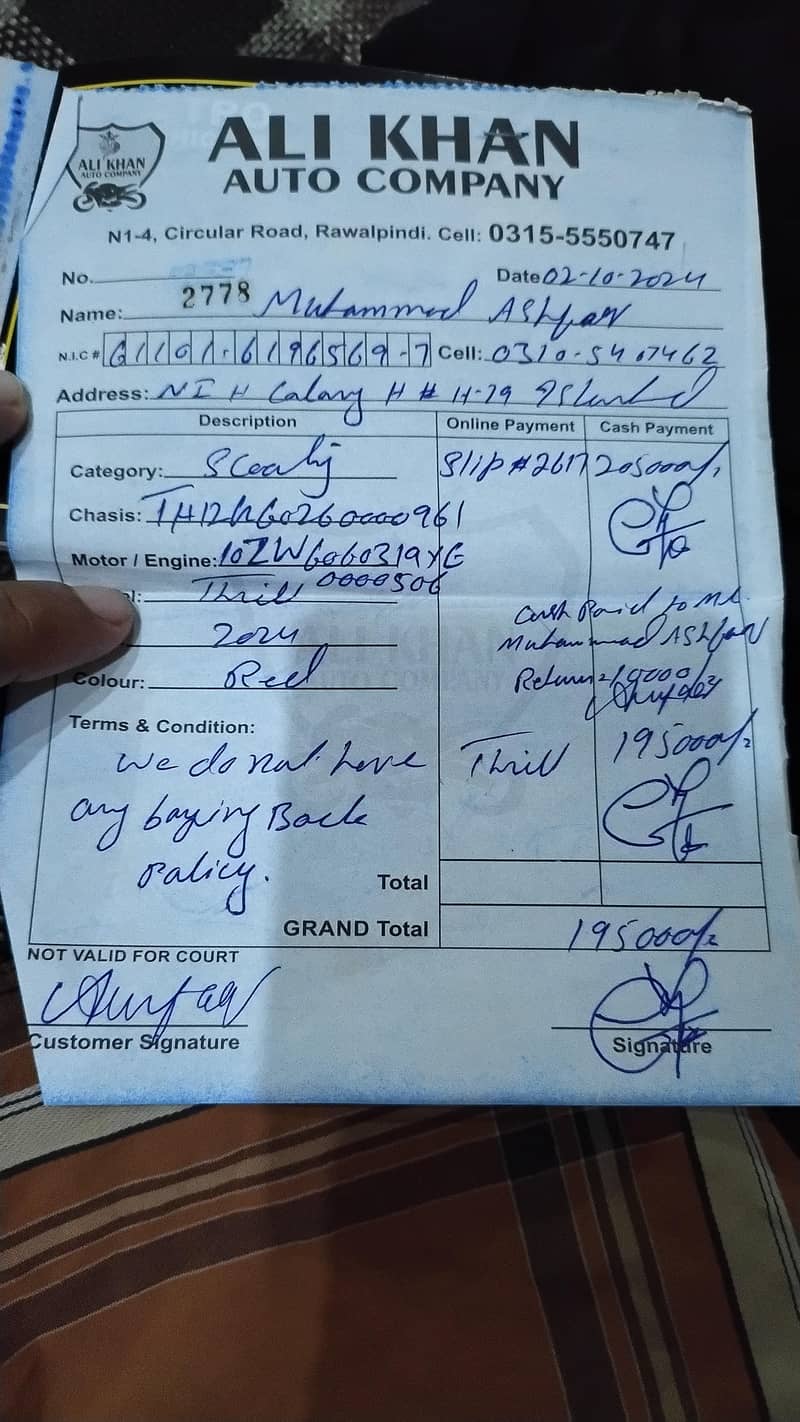 ALI KHAN
AUTO COMPANY
ALI KHAN
AUTO COMPANY
N1-4, Circular Road, Rawalpindi. Cell: 0315-5550747
No. 2778 Date 02-10-2024
Name: Muhammad Ashfaq
N.I.C # 61101-6196569-7 Cell: 0310-5407462
Address: NIH H # H-29
Description Online Payment Cash Payment
Category: Scooty Slip # 2617 205000/-
Chasis:
Motor / Engine: 10ZW6060319YE
0000506
Thrill
2024
Cash Paid to Mr.
Muhammad Ashfaq
Colour: Red
Return = 10000/-
Terms & Condition:
We do not have
any buying Back
Policy.
Thrill 195000/-
Total
GRAND Total 195000/-
NOT VALID FOR COURT
Customer Signature
Signature